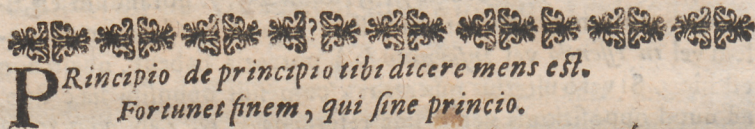 PRincipio de principio tibi dicere mens est.
Fortunet finem, qui sine princio.